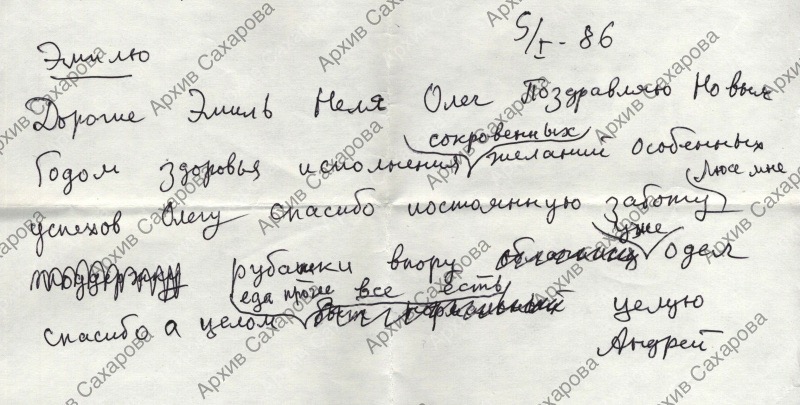 5/I - 86
Эмилю
Дорогие Эмиль Неля Олег Поздравляю Новым
сокровенных
Годом здоровья исполнения желаний особенных
Люсе мне
успехов Олегу спасибо постоянную заботу
уже
поддержку рубашки впору одел
еда проже все есть
спасибо а целом целую
Андрей
Архив Сахарова